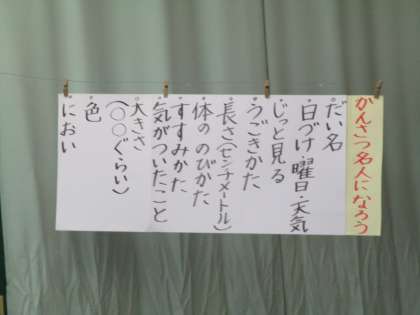 かんさつ名人になろう
・だい名
・日づけ・曜日・天気
・じっと見る
・うごきかた
・長さ(センチメートル)
・体の のびかた
・すすみかた
・気がついたこと
・大きさ
(〇〇ぐらい)
・色
・におい